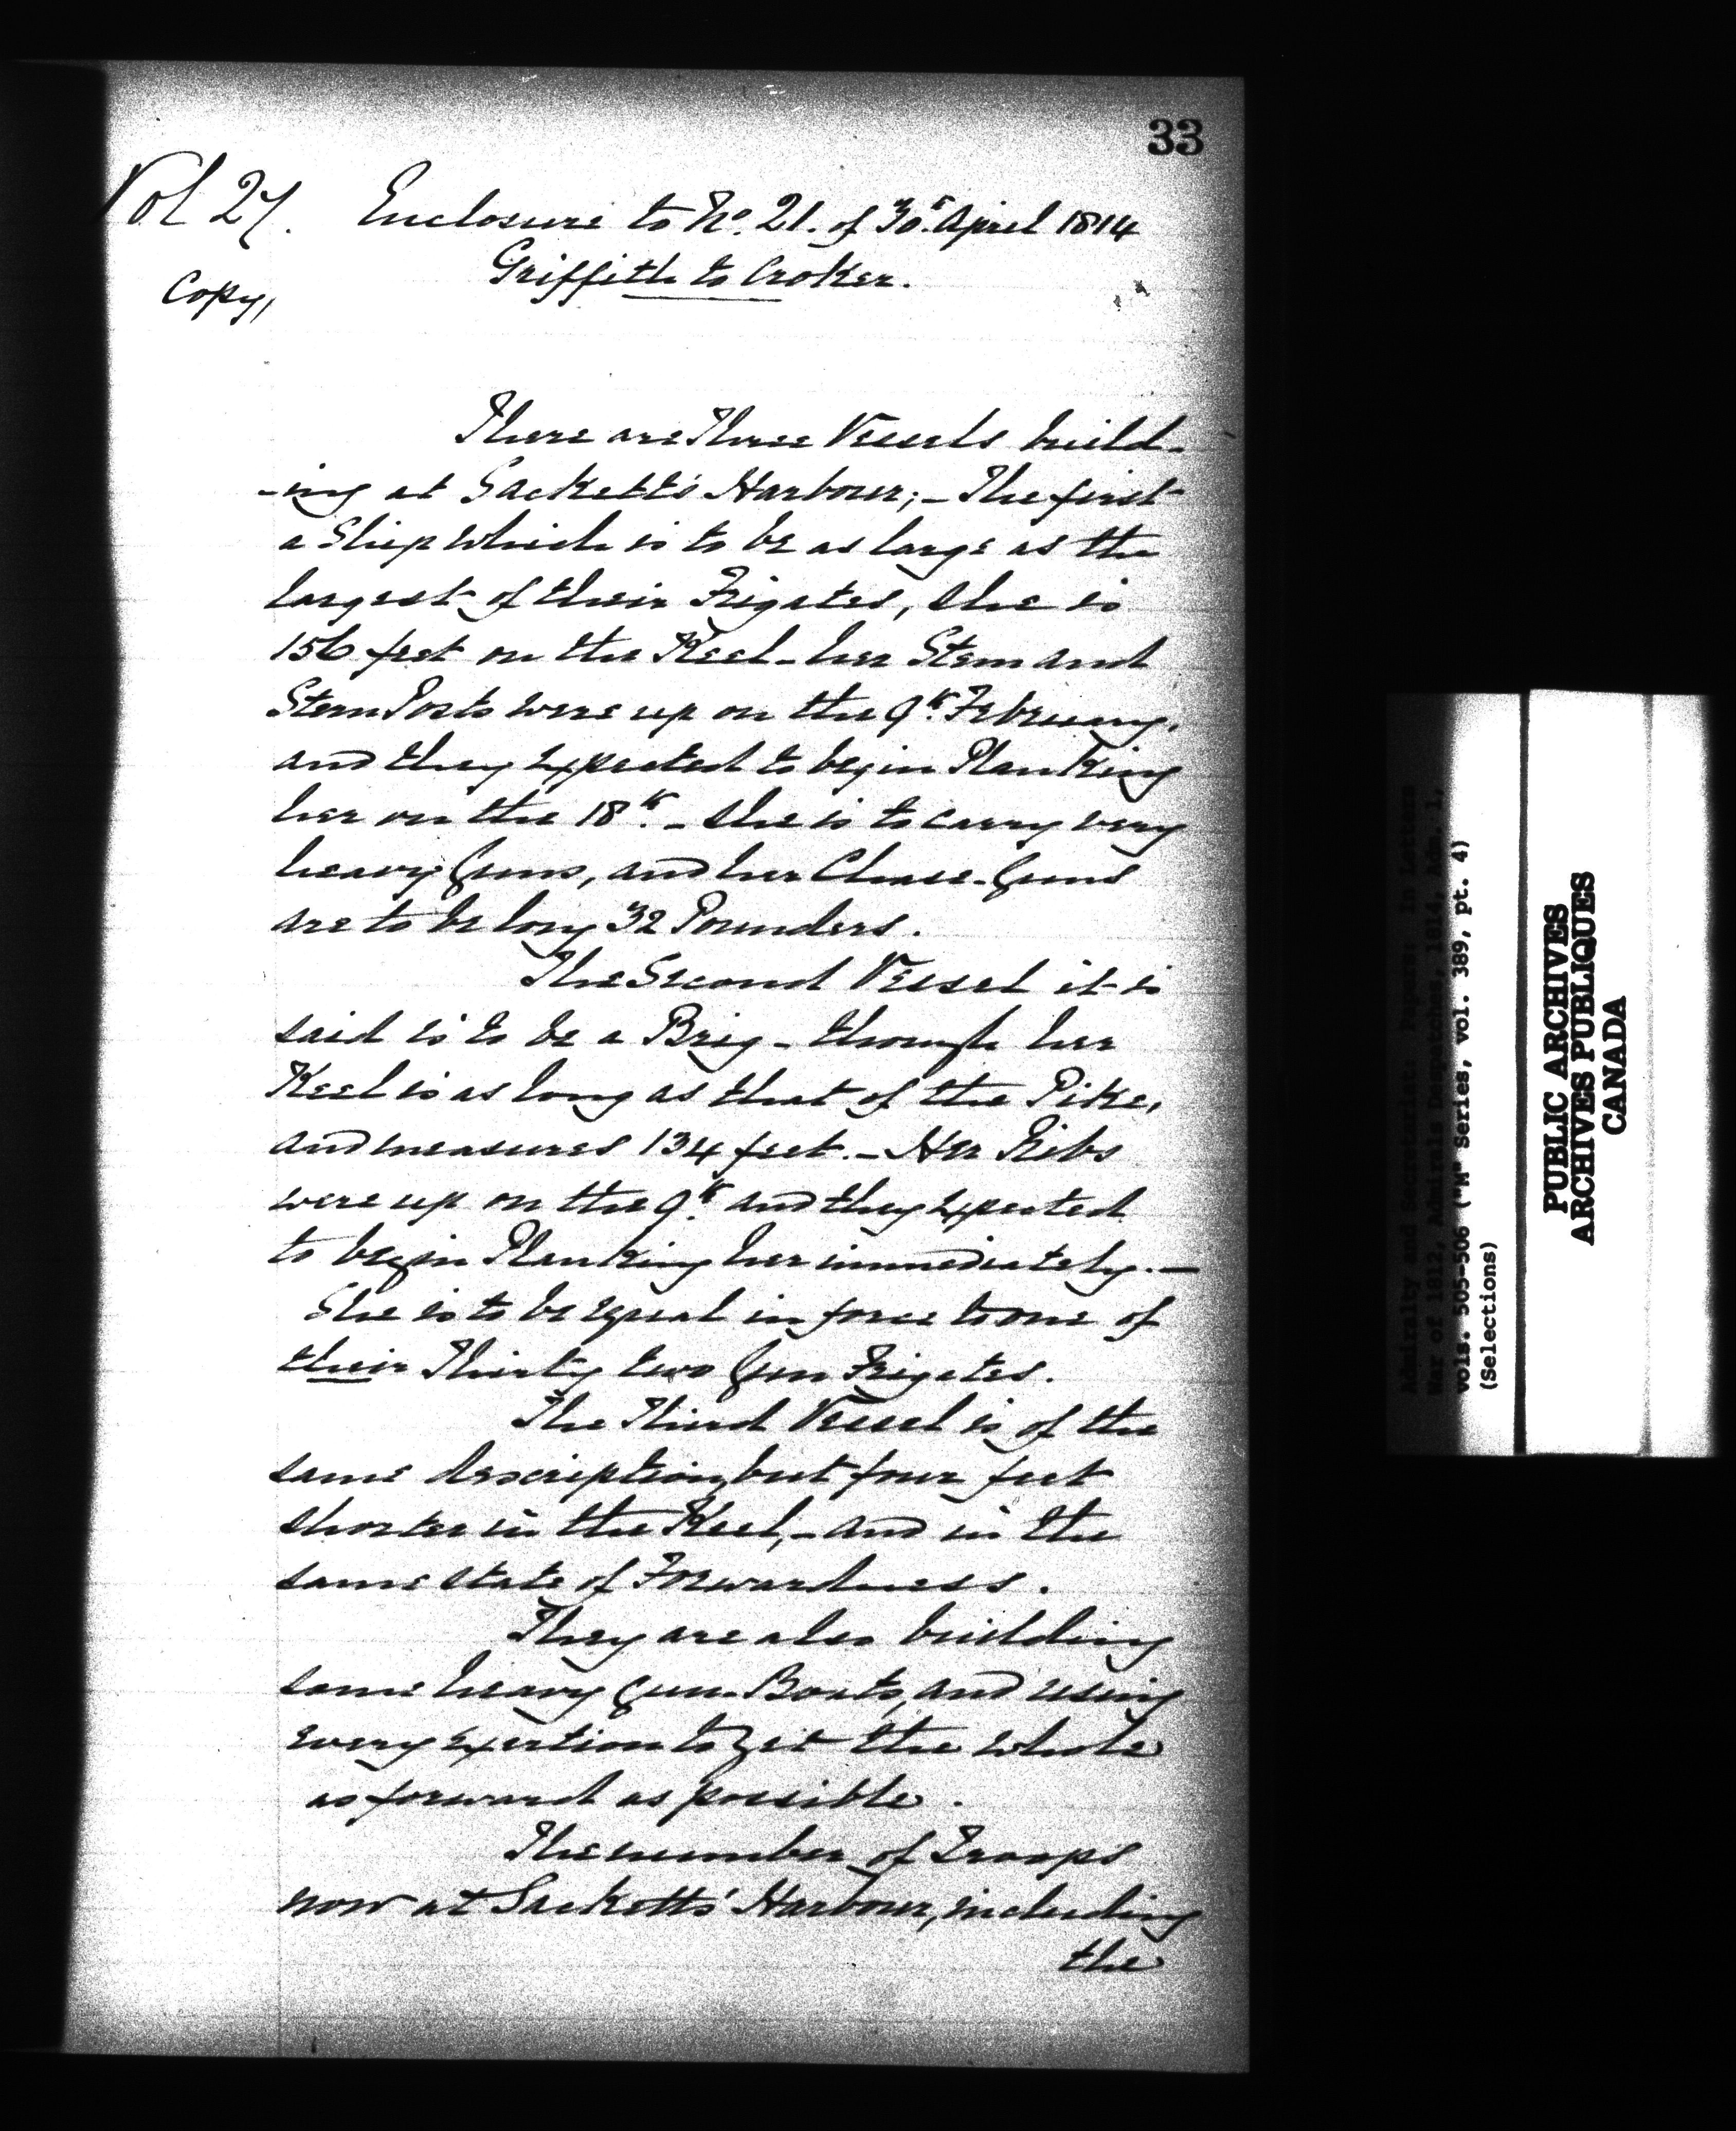 33
Vol 27. Enclosure to No. 21. of 30th April 1814
Griffith to Croker.
Copy,
There are Three Vessels build-
-ing at Sackett's Harbour; - The first
a Ship which is to be as large as the
largest of their Frigates, she is
156 feet on the Keel - her Stem and
Stern Posts were up on the 9th. February,
and they expected to begin Planking
her on the 18th. - She is to carry very
heavy Guns, and her Chase-Guns
are to be long 32 Pounders.
The Second Vessel it is
said is to be a Brig - though her
Keel is as long as that of the Pike,
and measures 134 feet. - Her Ribs
were up on the 9th. and they expected
to begin Planking her immediately. -
She is to be equal in force to one of
their Thirty two Gun Frigates.
The Third Vessel is of the
same description, but four feet
shorter in the Keel, - and in the
same state of Forwardness.
They are also building
some heavy Gun-Boats, and using
every exertion to get the whole
as forward as possible.
The number of Troops
now at Sacketts' Harbour, including
the
Admiralty and Secretariat: Papers: In Letters
War of 1812, Admirals Despatches, 1814, Adm. 1,
vols. 505-506 ("M" Series, vol. 389, pt. 4)
(Selections)
PUBLIC ARCHIVES
ARCHIVES PUBLIQUES
CANADA